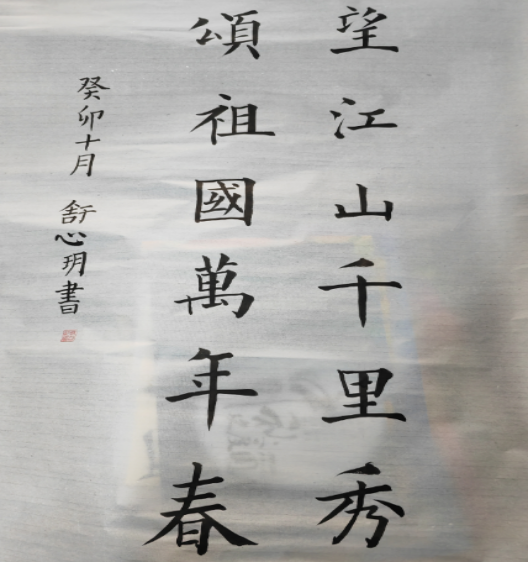 望江山千里秀
頌祖國萬年春
癸卯十月 舒心玥書